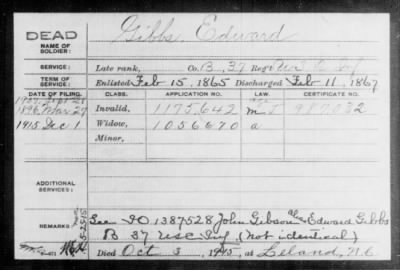 DEAD
NAME OF SOLDIER:
Gibbs, Edward
SERVICE:
Late rank, Co. B, 37 Reg't U.S. C. Inf
TERM OF SERVICE:
Enlisted Feb 15, 1865 Discharged Feb 11, 1867
DATE OF FILING. CLASS. APPLICATION NO. LAW. CERTIFICATE NO.
1896 Mar 27 Invalid, 1175642
1915 Dec 1 Widow, 1056670 a
Minor,
ADDITIONAL SERVICES:
REMARKS:
See IO 1387528 John Gibson als Edward Gibbs
B 37 USC Inf. (Not identical)
Died Oct 3, 1915 at Leland, N.C.